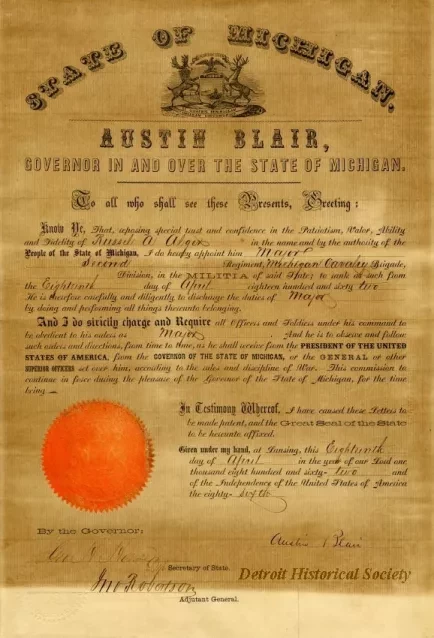 STATE OF MICHIGAN.
AUSTIN BLAIR,
GOVERNOR IN AND OVER THE STATE OF MICHIGAN.
To all who shall see these Presents, Greeting:
Know Ye, That, reposing special trust and confidence in the Patriotism, Valor, Ability
and Fidelity of Russell A. Alger in the name and by the authority of the
People of the State of Michigan, I do hereby appoint him Major
Second Regiment, Michigan Cavalry Brigade,
Division, in the MILITIA of said State; to rank as such from
the Eighteenth day of April eighteen hundred and sixty two
He is therefore carefully and diligently to discharge the duties of Major
by doing and performing all things thereunto belonging.
And I do strictly charge and Require all Officers and Soldiers under his command to
be obedient to his orders as Major And he is to observe and follow
such orders and directions, from time to time, as he shall receive from the PRESIDENT OF THE UNITED
STATES OF AMERICA, from the GOVERNOR OF THE STATE OF MICHIGAN, or the GENERAL or other
SUPERIOR OFFICERS set over him, according to the rules and discipline of War. This commission to
continue in force during the pleasure of the Governor of the State of Michigan, for the time
being.
In Testimony Whereof, I have caused these Letters to
be made patent, and the Great Seal of the State
to be hereunto affixed.
Given under my hand, at Lansing, this Eighteenth
day of April in the year of our Lord one
thousand eight hundred and sixty-two and
of the Independence of the United States of America
the eighty-sixth
By the Governor:
Austin Blair
Secretary of State.
Jno Robertson
Adjutant General.
Detroit Historical Society